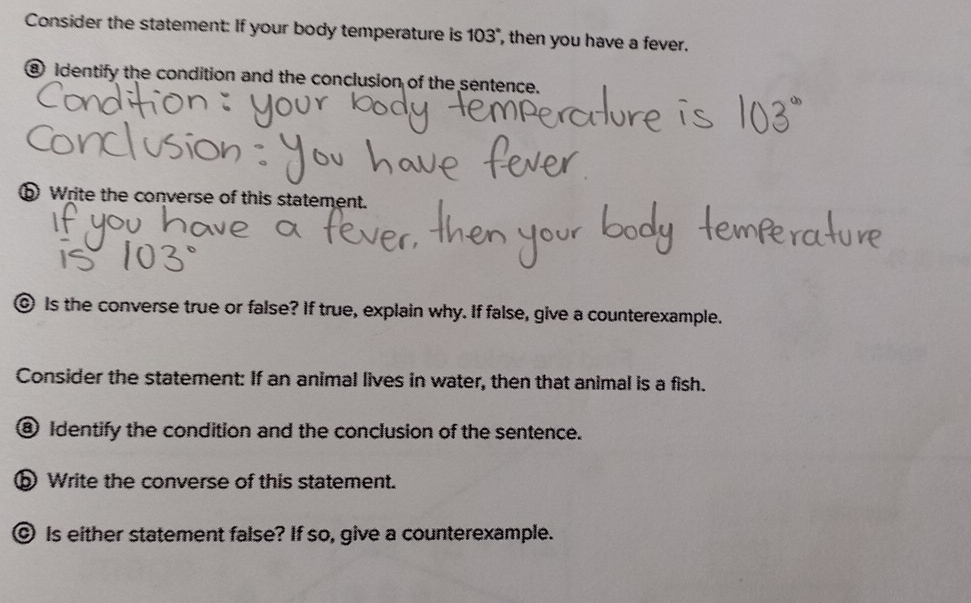 Consider the statement: If your body temperature is 103°, then you have a fever.
ⓐ Identify the condition and the conclusion of the sentence.
Condition: your body temperature is 103°
Conclusion: you have fever.
ⓑ Write the converse of this statement.
If you have a fever, then your body temperature
is 103°
ⓒ Is the converse true or false? If true, explain why. If false, give a counterexample.
Consider the statement: If an animal lives in water, then that animal is a fish.
ⓐ Identify the condition and the conclusion of the sentence.
ⓑ Write the converse of this statement.
ⓒ Is either statement false? If so, give a counterexample.